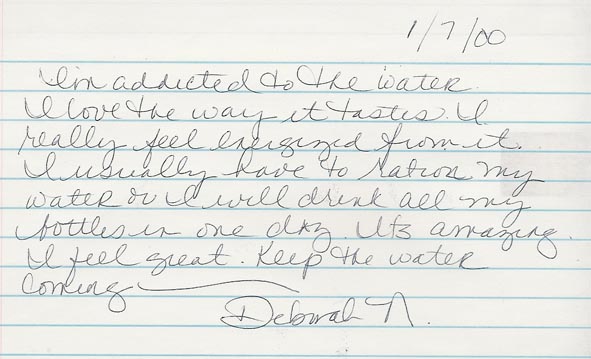 1/7/00
I'm addicted to the water.
I love the way it tastes. I
really feel energized from it.
I usually have to ration my
water or I will drink all my
bottles in one day. It's amazing.
I feel great. Keep the water
coming
Deborah N.